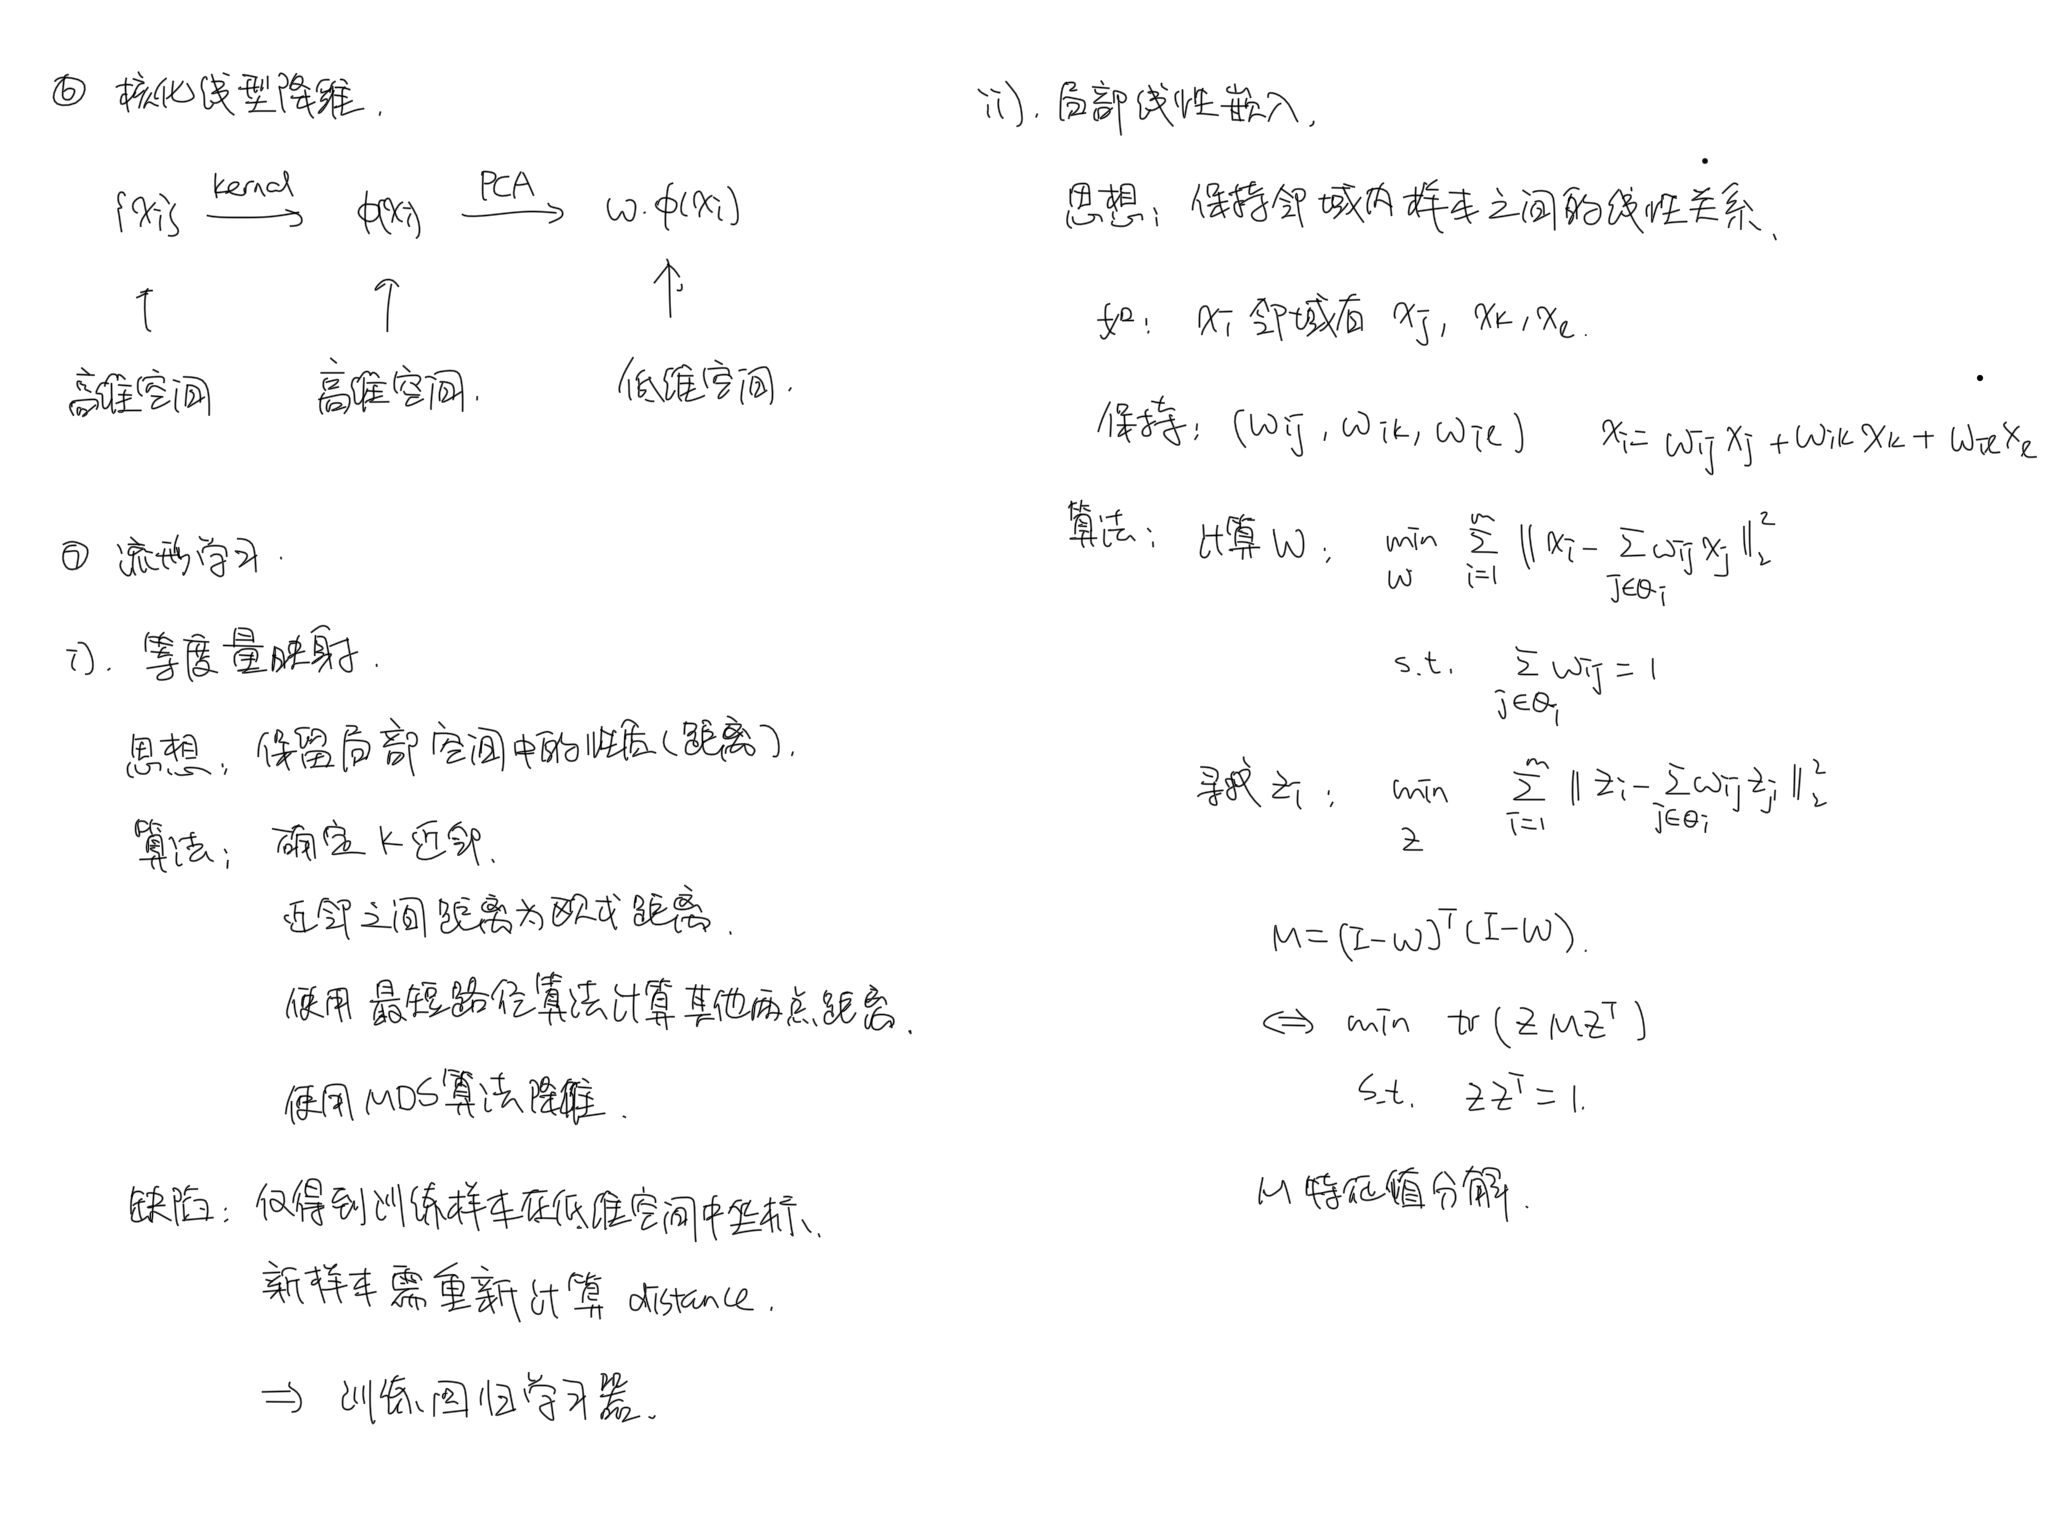 ⑥ 核化线型降维.
{xi} kernel → φ(xi) PCA → w·φ(xi)
↑ ↑ ↑
高维空间 高维空间. 低维空间.
⑦ 流形学习.
i). 等度量映射.
思想: 保留局部空间中的性质(距离).
算法: 确定 K 近邻.
近邻之间距离为欧式距离.
使用最短路径算法计算其他两点距离.
使用MDS算法降维.
缺陷: 仅得到训练样本在低维空间中坐标、
新样本需重新计算 distance.
⇒ 训练回归学习器.
ii). 局部线性嵌入.
思想: 保持邻域内样本之间的线性关系.
如: xi 邻域有 xj, xk, xl.
保持: (wij, wik, wil) xi = wij xj + wik xk + wil xl
算法: 计算 W: min_w Σ_{i=1}^{m} ‖xi - Σ_{j∈Qi} wij xj‖₂²
s.t. Σ_{j∈Qi} wij = 1
寻找 zi: min_z Σ_{i=1}^{m} ‖zi - Σ_{j∈Qi} wij zj‖₂²
M = (I-W)^T (I-W).
⇔ min tr(Z M Z^T)
s.t. ZZ^T = 1.
M 特征值分解.